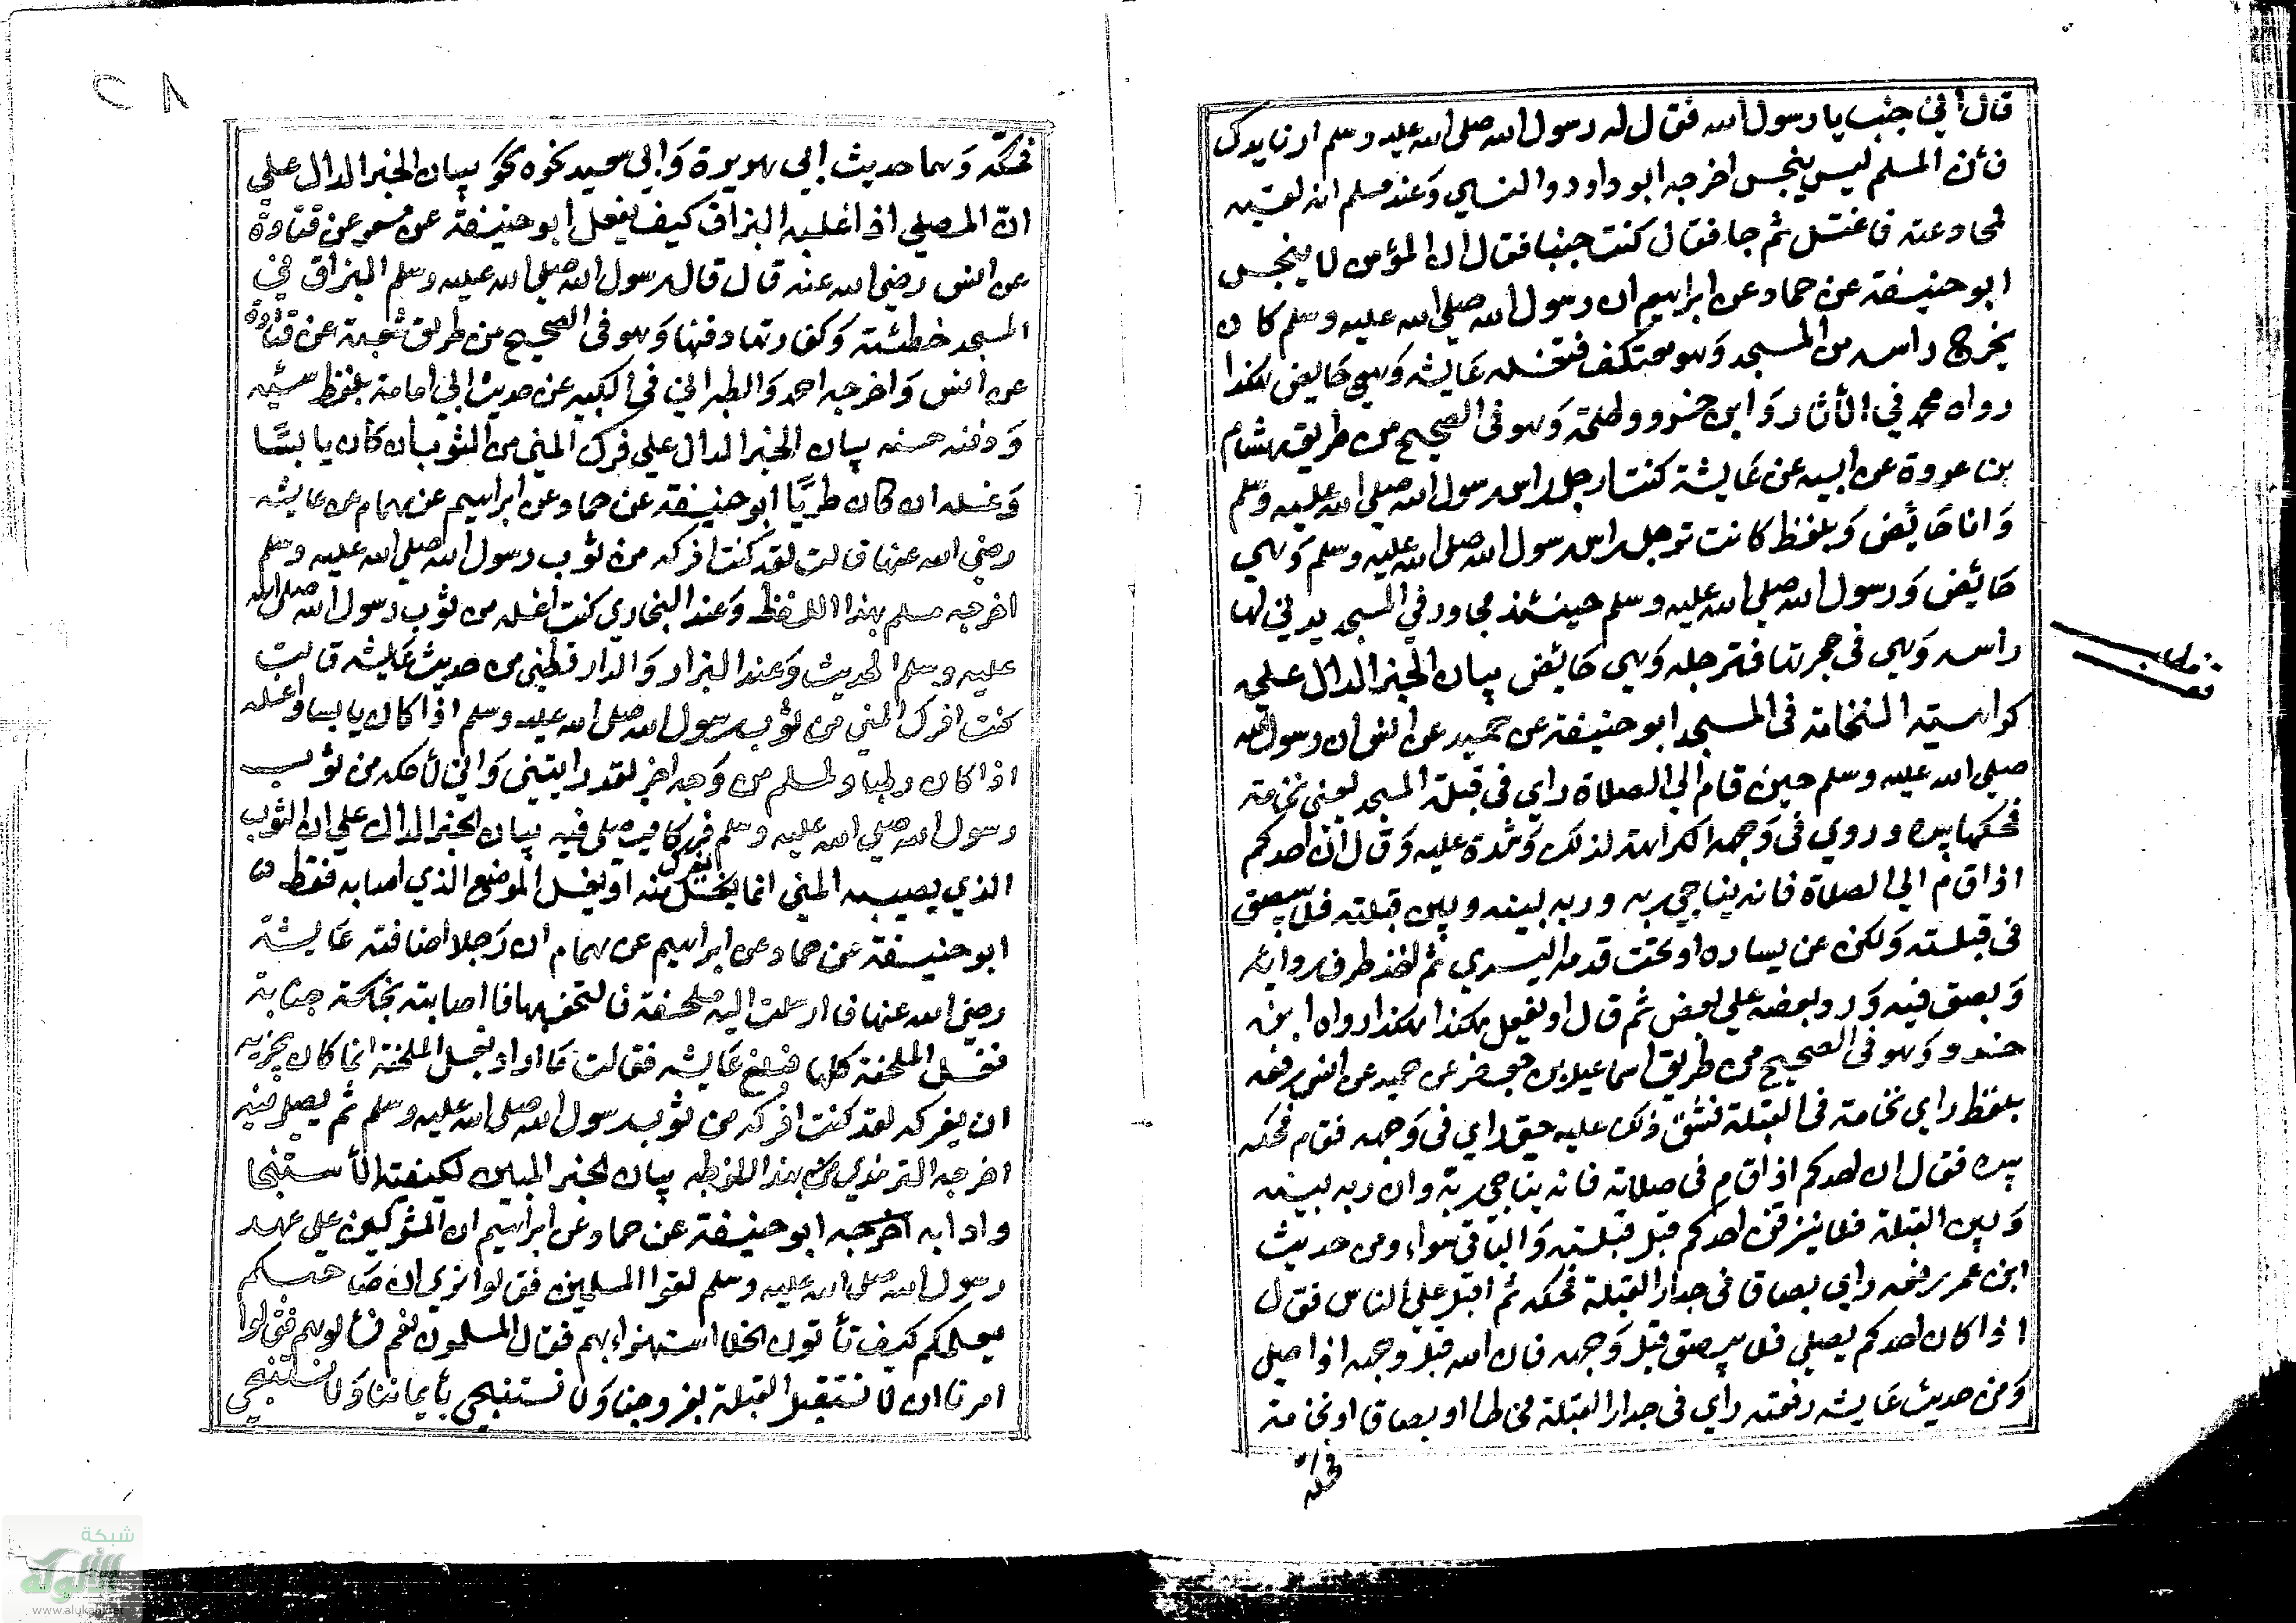 قال اني جنب يا رسول الله فقال له رسول الله صلى الله عليه وسلم ارنا يدك
فان المسلم ليس ينجس اخرجه ابو داود والنسايي وعند مسلم انه لقيه
فحاد عنه فاغتسل ثم جا فقال كنت جنبا فقال ان المؤمن لا ينجس
ابو حنيفة عن حماد عن ابراهيم ان رسول الله صلى الله عليه وسلم كان
يخرج راسه من المسجد وهو معتكف فتغسله عايشه وهي حايض هكذا
رواه محمد في الأثار وابن خسرو وطلحة وهو في الصحيح من طريق هشام
بن عروة عن ابيه عن عايشة كنت ارجل راس رسول الله صلى الله عليه وسلم
وانا حائض وبلفظ كانت ترجل راس رسول الله صلى الله عليه وسلم وهي
حائض ورسول الله صلى الله عليه وسلم حينئذ مجاور في المسجد يدني لها
راسه وهي في حجرتها فترجله وهي حائض بيان الخبر الدال على
كراهية النخامة في المسجد ابو حنيفة عن حميد عن انس ان رسول الله
صلى الله عليه وسلم حين قام الي الصلاة راي في قبلة المسجد يعني نخامة
فحكها بيده وروي في وجهه الكراهة لذلك وشدة عليه وقال ان احدكم
اذا قام الي الصلاة فانه يناجي ربه وربه بينه وبين قبلته فلا يبصق
في قبلته ولكن عن يساره او تحت قدمه اليسري ثم اخذ طرف ردايه
وبصق فيه ورد بعضه علي بعض ثم قال او يفعل هكذا هكذا رواه ابن
خسرو وهو في الصحيح من طريق اسماعيل بن جعفر عن حميد عن انس رفعه
بلفظ راي نخامة في القبلة فشق ذلك عليه حتى راي في وجهه فقام فحكه
بيده فقال ان احدكم اذا قام في صلاته فانه يناجي ربه وان ربه بينه
وبين القبلة فلا يبزقن احدكم قبل قبلته والباقي سواء ومن حديث
ابن عمر رفعه راي بصاقا في جدار القبلة فحكه ثم اقبل علي الناس فقال
اذا كان احدكم يصلي فلا يبصق قبل وجهه فان الله قبل وجهه اذا صلى
ومن حديث عايشه رفعته راي في جدار القبلة مخاطا او بصاقا او نخامة
فحكه
٢٨
فحكه وهما حديث ابي هريرة وابي سعيد نحوه نحو بيان الخبر الدال علي
ان المصلي اذا غلبه البزاق كيف يفعل ابو حنيفة عن مسعر عن قتادة
عن انس رضي الله عنه قال قال رسول الله صلى الله عليه وسلم البزاق في
المسجد خطئية وكفارتها دفنها وهو في الصحيح من طريق شعبة عن قتادة
عن انس واخرجه احمد والطبراني في الكبير عن حديث ابي امامة بلفظ سيئه
ودفنه حسنه بيان الخبر الدال علي فرك المني من الثوب ان كان يابسا
وغسله ان كان طريا ابو حنيفة عن حماد عن ابراهيم عن همام عن عايشه
رضي الله عنها قالت لقد كنت افركه من ثوب رسول الله صلى الله عليه وسلم
اخرجه مسلم بهذا اللفظ وعند البخاري كنت اغسله من ثوب رسول الله صلى الله
عليه وسلم الحديث وعند البزار والدارقطني من حديث عايشه قالت
كنت افرك المني من ثوب رسول الله صلى الله عليه وسلم اذا كان يابسا واغسله
اذا كان رطبا ولمسلم من وجه اخر لقد رايتني واني لأحكه من ثوب
رسول الله صلى الله عليه وسلم فركا فيصلي فيه بيان الخبر الدال علي ان الثوب
الذي يصيبه المني انما يفرك منه او يغسل الموضع الذي اصابه فقط
ابو حنيفة عن حماد عن ابراهيم عن همام ان رجلا اضافته عايشة
رضي الله عنها فارسلت اليه ملحفة فالتحف بها فاصابته جنابة
فغسل الملحفة كلها فبلغ عايشه فقالت ما اراد بغسل الملحفة انما كان يجزيه
ان يفركه لقد كنت افركه من ثوب رسول الله صلى الله عليه وسلم ثم يصلي فيه
اخرجه الترمذي بهذا اللفظ بيان الخبر المبين لكيفية الأستنجا
وادابه ابو حنيفة عن حماد عن ابراهيم ان المشركين علي عهد
رسول الله صلى الله عليه وسلم لقوا المسلمين فقالوا نري ان صاحبكم
يعلمكم كيف تأتون الخلا استهزاء بهم فقال المسلمون نعم فسألوهم فقالوا
امرنا ان لا نستقبل القبلة بفروجنا ولا نستنجي بأيماننا ولا نستنجي
شبكة
الألوكة
www.alukah.net